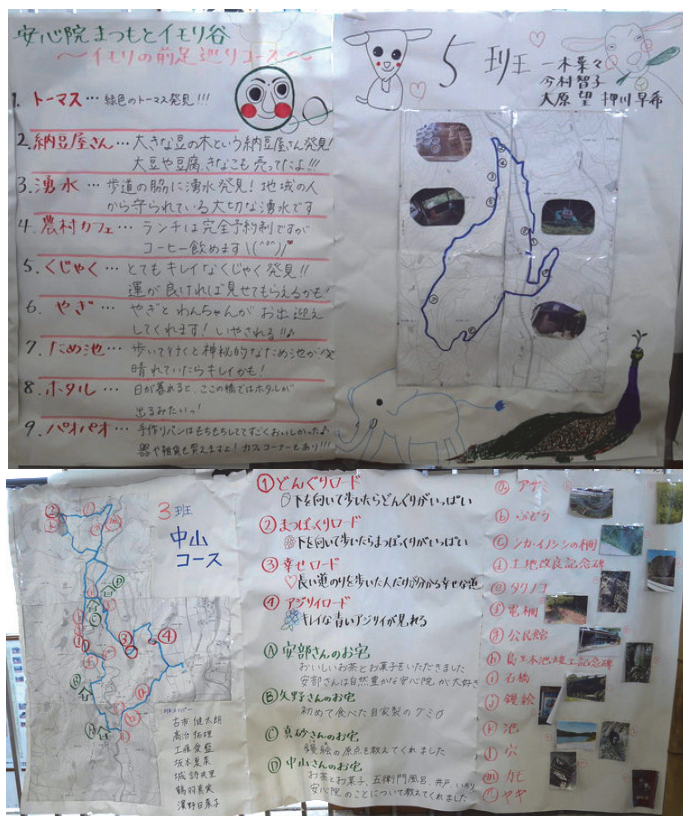 安心院まつもとイモリ谷
～イモリの前足巡りコース～
1. トーマス … 緑色のトーマス発見!!!
2. 納豆屋さん … 大きな豆の木という納豆屋さん発見!
大豆や豆腐、きなこも売ってたよ!!!
3. 湧水 … 歩道の脇に湧水発見! 地域の人
から守られている大切な湧水です
4. 農村カフェ … ランチは完全予約制ですが
コーヒー飲めます\(^o^)/
5. くじゃく … とてもキレイなくじゃく発見!!
運が良ければ見せてもらえるかも!
6. やぎ … やぎとわんちゃんがお出迎え
してくれます! いやされる!!♪
7. ため池 … 歩いて行くと神秘的なため池が
晴れていたらキレイかも!
8. ホタル … 日が暮れると、ここの橋ではホタルが
出るみたいっ!
9. パオパオ … 手作りパンはもちもちしてすごくおいしかった♪
器や雑貨も買えますよ! カフェコーナーもあり!!!
5班
一木菜々
今村智子
大原 望 押川早希
3班
中山
コース
古市 健太朗
工藤
坂本
城
鶴羽
濱野日菜子
① どんぐりロード
下を向いて歩いたらどんぐりがいっぱい
② まつぼっくりロード
下を向いて歩いたらまつぼっくりがいっぱい
③ 幸せロード
♡長い道のりを歩いた人だけが分かる幸せな道
④ アジサイロード
キレイな青いアジサイが見れる
Ⓐ 安部さんのお宅
おいしいお茶とお菓子をいただきました
安部さんは自然豊かな安心院が大好き
Ⓑ 矢野さんのお宅
初めて食べた自家製のグミ
Ⓒ 真砂さんのお宅
鏝絵の原点を教えてくれました
Ⓓ 中山さんのお宅
お茶とお菓子、五衛門風呂、井戸、いろり
安心院のことについて教えてくれました
ⓐ アザミ
ⓑ ぶどう
ⓒ シカ・イノシシの柵
ⓓ 土地改良記念碑
ⓔ タケノコ
ⓕ 電柵
ⓖ 公民館
ⓗ 池竣工記念碑
ⓘ 石橋
ⓙ 鏝絵
ⓚ 池
ⓛ 穴
ⓜ カモ
ⓝ ヤギ